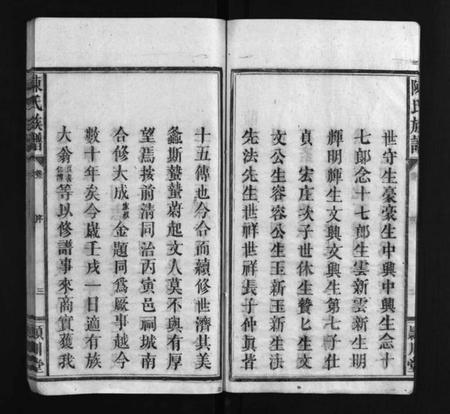 世守生豪豪生中興中興生念十
七郎念十七郎生雲新雲新生明
輝明輝生文興文興生第七子仕
貞 宏庄次子世休生贊匕生文
文公生容容公生玉新玉新生法
先法先生世祥世祥長子仲眞皆
十五傳也今合而續修世濟其美
螽斯蟄蟄蔚起文人莫不與有厚
望焉按前清同治丙寅邑祠城南
合修大成金題同爲厥事越今
數十年矣今歲壬戌一日適有族
大翁等以修譜事來商實獲我
陳氏族譜
卷 序
三
潁川堂